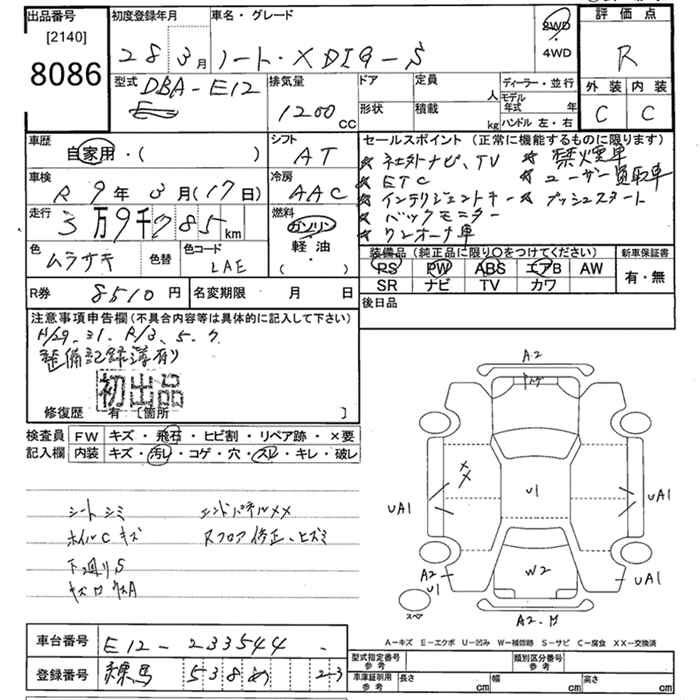 出品番号
[2140]
8086
初度登録年月
28 3月
車名・グレード
ノート・X DIG-S
2WD
4WD
評価点
R
外装 内装
C C
型式
DBA-E12
排気量
1200 CC
ドア
形状
定員
人
積載
kg
ディーラー・並行
モデル年式 年
ハンドル 左・右
車歴
自家用・( )
シフト
AT
車検
R 9年 3月(17日)
冷房
AAC
走行
3万9千785 km
燃料
ガソリン
軽油・
( )
色
ムラサキ
色替
色コード
LAE
セールスポイント(正常に機能するものに限ります)
★社外ナビ、TV ★禁煙車
★ETC ★ユーザー買取車
★インテリジェントキー ★プッシュスタート
★バックモニター
★ワンオーナ車
装備品(純正品に限り○をつけてください)
PS PW ABS エアB AW
SR ナビ TV カワ
新車保証書
有・無
R券 8510円
名変期限 月 日
後日品
注意事項申告欄(不具合内容等は具体的に記入して下さい)
H29.31.R/3.5.7
整備記録簿有り
初出品
修復歴 有 [箇所 ]
検査員記入欄
FW キズ・飛石・ヒビ割・リペア跡・×要
内装 キズ・汚レ・コゲ・穴・スレ・キレ・破レ
シートシミ
ホイルCキズ
下廻りS
エンドパネルXX
Rフロア修正、ヒズミ
A2
UA1
U1
UA1
A2
U1
W2
UA1
スペア
A2.
A-キズ E-エクボ U-凹み W-補修跡 S-サビ C-腐食 XX-交換済
車台番号
E12-233544
登録番号
練馬 538 め 23
型式指定番号
参考
類別区分番号
参考
車庫証明用
参考
長さ cm
幅 cm
高さ cm